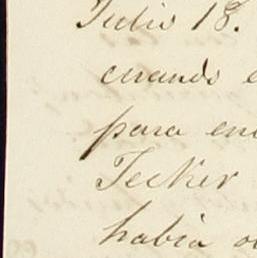 Julio 18.
cuando e
para en
Tecker
habia o